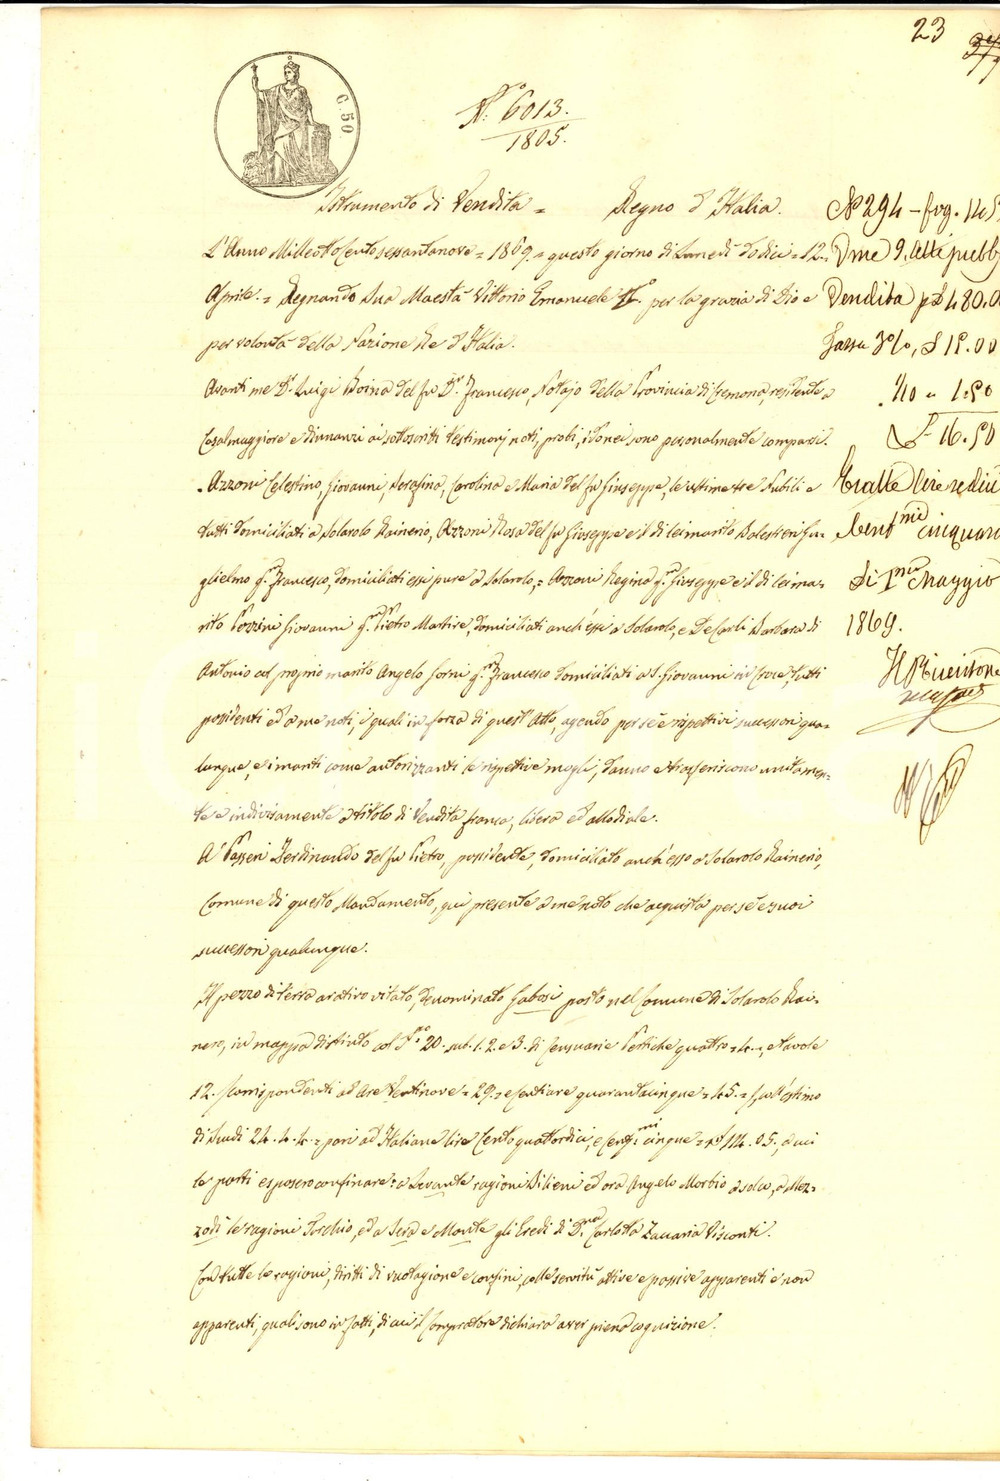 23
37
C. 50
N.° 6013.
1805.
Istrumento di Vendita = Regno d'Italia.
L'Anno Milleottocentosessantanove = 1869. = questo giorno di Lunedì dodici = 12. =
Aprile. = Regnando Sua Maestà Vittorio Emanuele II. per la grazia di Dio e
per volontà della Nazione Re d'Italia.
Avanti me Dr. Luigi Boina del fu Dr. Francesco, Notajo della Provincia di Cremona, residente a
Casalmaggiore e dinnanzi ai sottoscritti testimonj noti, probi, idonei sono personalmente comparsi.
Azzoni Celestino, Giovanni, Serafina, Carolina e Maria del fu Giuseppe, le ultime tre nubili e
tutti domiciliati a Solarolo Rainerio, Azzoni Rosa del fu Giuseppe e il di lei marito Balestreri Gu=
glielmo q.m Francesco, domiciliati essi pure a Solarolo, = Azzoni Regina q.m Giuseppe e il di lei ma=
rito Pozzini Giovanni q.m Pietro Martire, domiciliati anch'essi a Solarolo, e De Carli Barbara di
Antonio col proprio marito Angelo Sorni q.m Francesco domiciliati a S. Giovanni in Croce, tutti
possidenti ed a me noti, i quali in forza di quest'Atto, agendo per sè e rispettivi successori qua=
lunque, e i mariti come autorizzanti le rispettive mogli, danno e trasferiscono unitamen=
te e indivisamente a titolo di Vendita franca, libera ed allodiale.
A Passeri Ferdinando del fu Pietro, possidente, domiciliato anch'esso a Solarolo Rainerio,
Comune di questo Mandamento, qui presente a me noto che acquista per sè e suoi
successori qualunque.
Il pezzo di terra arativo vitato, denominato Gabosi posto nel Comune di Solarolo Rai=
nero, in mappa distinto col N.° 20. sub. 1. 2. e 3. di Censuarie Pertiche quattro = 4. =, e tavole
12. Corrispondenti ad are Ventinove = 29. = e Centiare quarantacinque = 45. = coll'estimo
di Scudi 24. 4. 4. = pari ad Italiane lire Cento quattordici, e cent.mi cinque = £ 114. 05., a cui
le parti esposero confinare: a Levante ragioni Silieni ed ora Angelo Morbio a solco, a Mez=
zodì le ragioni Torchio, ed a Sera e Monte gli Eredi di D.na Carlotta Zaccaria Visconti.
Con tutte le ragioni, diritti di vastagione e confini, colle servitù attive e passive apparenti e non
apparenti, quali sono in fatti, di cui il Compratore dichiara aver piena cognizione.
N° 294 - fog. 145
Vendita p £ 480.0
Tassa 3%, £ 15.00
1/10 " 1.50
£ 16.50
Esatte lire sedici
Cent.mi cinquan
li 1.mo Maggio
1869.
Il Ricevitore